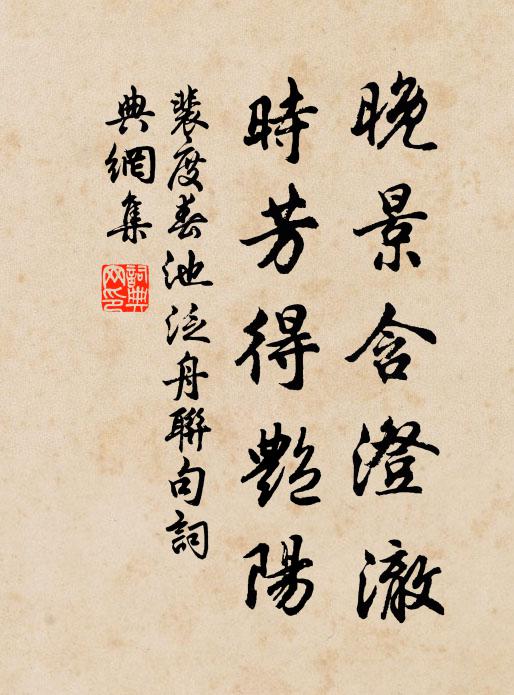 晚景含澄澈
時芳得艷陽
裴度春池泛舟聯句詞
典網集
詞典網印